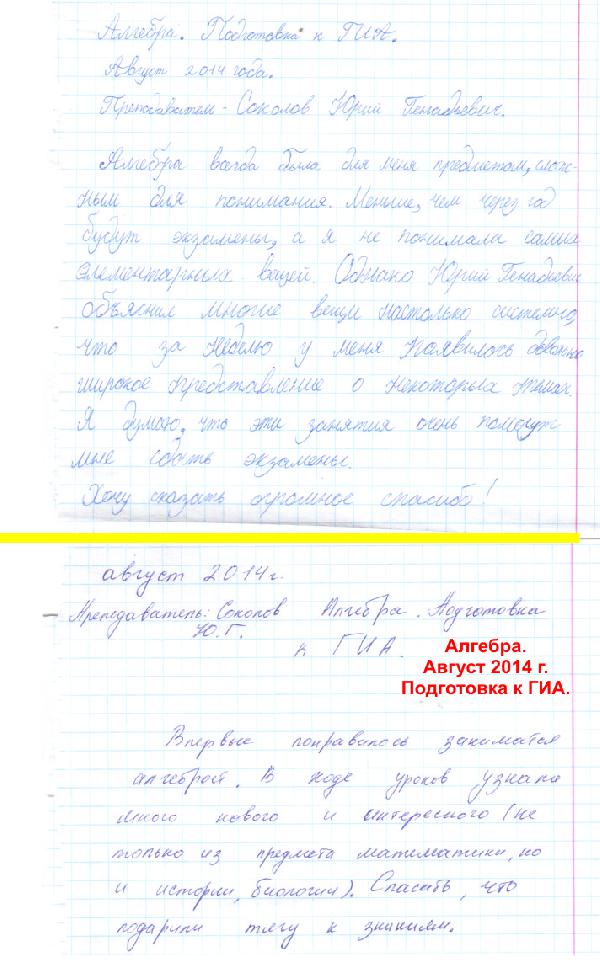 Алгебра. Подготовка к ГИА.
Август 2014 года.
Преподаватель - Соколов Юрий Генадиевич.
Алгебра всегда была для меня предметом, слож-
ным для понимания. Меньше, чем через год
будут экзамены, а я не понимала самых
элементарных вещей. Однако Юрий Генадиевич
объяснил многие вещи настолько системно,
что за неделю у меня появилось довольно
широкое представление о некоторых темах.
Я думаю, что эти занятия очень помогут
мне сдать экзамены.
Хочу сказать огромное спасибо!
август 2014г.
Преподаватель: Соколов Алгебра. Подготовка
Ю.Г.
к ГИА.
Алгебра.
Август 2014 г.
Подготовка к ГИА.
Впервые понравилось заниматся
алгеброй. В ходе уроков узнала
много нового и интересного (не
только из предмета математики, но
и истории, биологии). Спасибо, что
подарили тягу к знаниям.